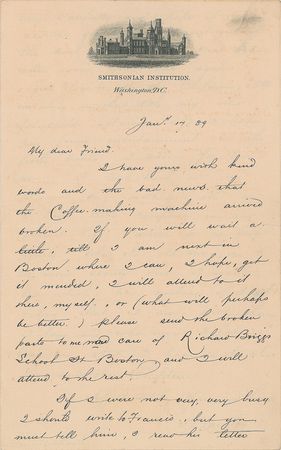 SMITHSONIAN INSTITUTION.
Washington, D.C.
Jany 17. 89
My dear Friend.
I have yours with kind
words and the bad news that
the Coffee-making machine arrived
broken. If you will wait a
little, till I am next in
Boston where I can, I hope, get
it mended, I will attend to it
there, myself, or (what will perhaps
be better.) please send the broken
parts to me care of Richard Briggs
School St Boston, and I will
attend to the rest.
If I were not very, very busy
I should write to Francis, but you
must tell him, I read his letter